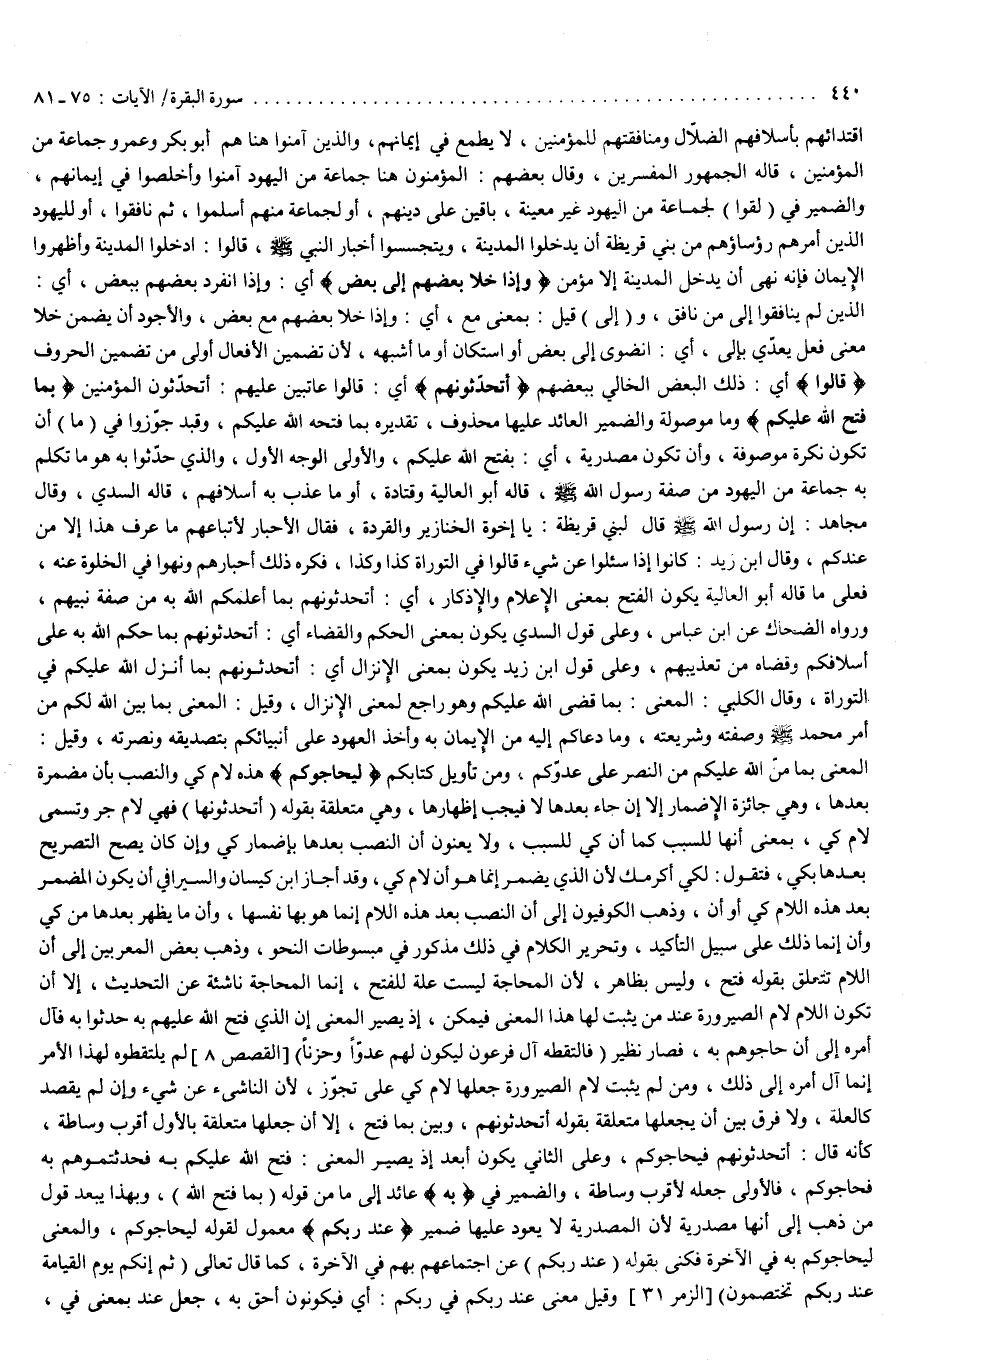 ٤٤٠ ........................................................ سورة البقرة/ الآيات : ٧٥ـ٨١
اقتدائهم بأسلافهم الضلّال ومنافقتهم للمؤمنين ، لا يطمع في إيمانهم، والذين آمنوا هنا هم أبو بكر وعمرو جماعة من
المؤمنين ، قاله الجمهور المفسرين ، وقال بعضهم : المؤمنون هنا جماعة من اليهود آمنوا وأخلصوا في إيمانهم ،
والضمير في ( لقوا ) لجماعة من اليهود غير معينة ، باقين على دينهم ، أو لجماعة منهم أسلموا ، ثم نافقوا ، أو لليهود
الذين أمرهم رؤساؤهم من بني قريظة أن يدخلوا المدينة ، ويتجسسوا أخبار النبي ﷺ ، قالوا : ادخلوا المدينة وأظهروا
الإيمان فإنه نهى أن يدخل المدينة إلا مؤمن ﴿ وإذا خلا بعضهم إلى بعض ﴾ أي : وإذا انفرد بعضهم ببعض ، أي :
الذين لم ينافقوا إلى من نافق ، و ( إلى ) قيل : بمعنى مع ، أي : وإذا خلا بعضهم مع بعض ، والأجود أن يضمن خلا
معنى فعل يعدّي بإلى ، أي : انضوى إلى بعض أو استكان أو ما أشبهه ، لأن تضمين الأفعال أولى من تضمين الحروف
﴿ قالوا ﴾ أي : ذلك البعض الخالي ببعضهم ﴿ أتحدّثونهم ﴾ أي : قالوا عاتبين عليهم : أتحدّثون المؤمنين ﴿ بما
فتح الله عليكم ﴾ وما موصولة والضمير العائد عليها محذوف ، تقديره بما فتحه الله عليكم ، وقبد جوّزوا في ( ما ) أن
تكون نكرة موصوفة ، وأن تكون مصدرية ، أي : بفتح الله عليكم ، والأولى الوجه الأول ، والذي حدّثوا به هو ما تكلم
به جماعة من اليهود من صفة رسول الله ﷺ ، قاله أبو العالية وقتادة ، أو ما عذب به أسلافهم ، قاله السدي ، وقال
مجاهد : إن رسول الله ﷺ قال لبني قريظة : يا إخوة الخنازير والقردة ، فقال الأحبار لأتباعهم ما عرف هذا إلا من
عندكم ، وقال ابن زيد : كانوا إذا سئلوا عن شيء قالوا في التوراة كذا وكذا ، فكره ذلك أحبارهم ونهوا في الخلوة عنه ،
فعلى ما قاله أبو العالية يكون الفتح بمعنى الإعلام والإذكار ، أي : أتحدثونهم بما أعلمكم الله به من صفة نبيهم ،
ورواه الضحاك عن ابن عباس ، وعلى قول السدي يكون بمعنى الحكم والقضاء أي : أتحدثونهم بما حكم الله به على
أسلافكم وقضاه من تعذيبهم ، وعلى قول ابن زيد يكون بمعنى الإنزال أي : أتحدثونهم بما أنزل الله عليكم في
التوراة ، وقال الكلبي : المعنى : بما قضى الله عليكم وهو راجع لمعنى الإنزال ، وقيل : المعنى بما بين الله لكم من
أمر محمد ﷺ وصفته وشريعته ، وما دعاكم إليه من الإيمان به وأخذ العهود على أنبيائكم بتصديقه ونصرته ، وقيل :
المعنى بما منّ الله عليكم من النصر على عدوّكم ، ومن تأويل كتابكم ﴿ ليحاجوكم ﴾ هذه لام كي والنصب بأن مضمرة
بعدها ، وهي جائزة الإضمار إلا إن جاء بعدها لا فيجب إظهارها ، وهي متعلقة بقوله ( أتحدثونها ) فهي لام جر وتسمى
لام كي ، بمعنى أنها للسبب كما أن كي للسبب ، ولا يعنون أن النصب بعدها بإضمار كي وإن كان يصح التصريح
بعدها بكي ، فتقول : لكي أكرمك لأن الذي يضمر إنما هو أن لام كي ، وقد أجاز ابن كيسان والسيرافي أن يكون المضمر
بعد هذه اللام كي أو أن ، وذهب الكوفيون إلى أن النصب بعد هذه اللام إنما هو بها نفسها ، وأن ما يظهر بعدها من كي
وأن إنما ذلك على سبيل التأكيد ، وتحرير الكلام في ذلك مذكور في مبسوطات النحو ، وذهب بعض المعربين إلى أن
اللام تتعلق بقوله فتح ، وليس بظاهر ، لأن المحاجة ليست علة للفتح ، إنما المحاجة ناشئة عن التحديث ، إلا أن
تكون اللام لام الصيرورة عند من يثبت لها هذا المعنى فيمكن ، إذ يصير المعنى إن الذي فتح الله عليهم به حدثوا به فآل
أمره إلى أن حاجوهم به ، فصار نظير ( فالتقطه آل فرعون ليكون لهم عدوّاً وحزناً) [القصص ٨ ] لم يلتقطوه لهذا الأمر
إنما آل أمره إلى ذلك ، ومن لم يثبت لام الصيرورة جعلها لام كي على تجوّز ، لأن الناشىء عن شيء وإن لم يقصد
كالعلة ، ولا فرق بين أن يجعلها متعلقة بقوله أتحدثونهم ، وبين بما فتح ، إلا أن جعلها متعلقة بالأول أقرب وساطة ،
كأنه قال : أتحدثونهم فيحاجوكم ، وعلى الثاني يكون أبعد إذ يصير المعنى : فتح الله عليكم به فحدثتموهم به
فحاجوكم ، فالأولى جعله لأقرب وساطة ، والضمير في ﴿ به ﴾ عائد إلى ما من قوله ( بما فتح الله ) ، وبهذا يبعد قول
من ذهب إلى أنها مصدرية لأن المصدرية لا يعود عليها ضمير ﴿ عند ربكم ﴾ معمول لقوله ليحاجوكم ، والمعنى
ليحاجوكم به في الآخرة فكنى بقوله ( عند ربكم ) عن اجتماعهم بهم في الآخرة ، كما قال تعالى ( ثم إنكم يوم القيامة
عند ربكم تختصمون) [الزمر ٣١ ] وقيل معنى عند ربكم في ربكم : أي فيكونون أحق به ، جعل عند بمعنى في ،